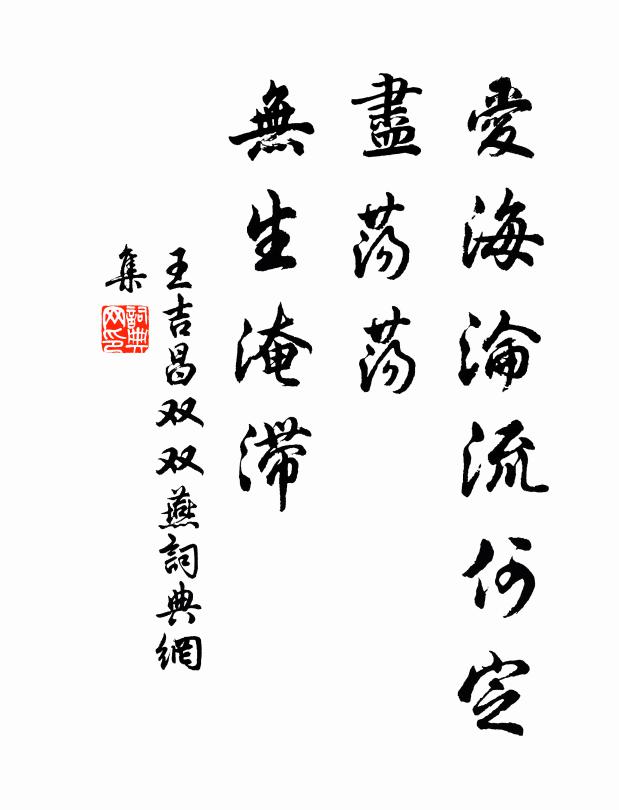 愛海淪流何定
盡蕩蕩
無生淹滯
王吉昌双双燕詞典網
集
詞典
网印